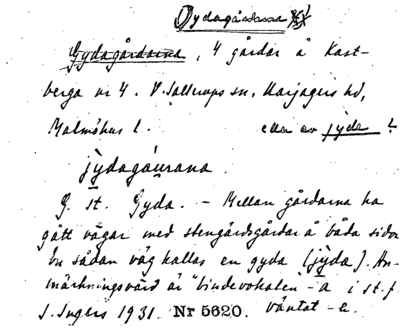 Gydagårdarna
Gydagårdarna, 4 gårdar å Kast-
berga nr 4. V. Sallerups sn, Harjagers hd,
Malmöhus l. eller av jyda?
jydagåurana.
G. st. Gyda. - Mellan gårdarna ha
gått vägar med stengärdsgårdar å båda sidor
en sådan väg kallas en gyda (jyda). An-
märkningsvärd är "bindevokalen" -a i st. f.
I. Ingers 1931. Nr 5620. väntat - e.